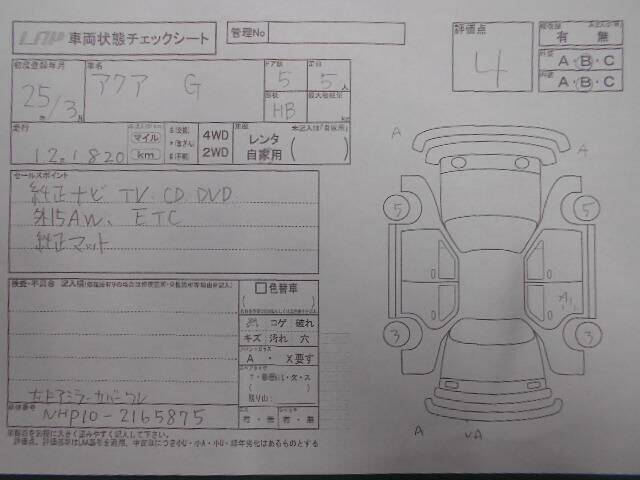 LAP 車両状態チェックシート
管理No
評価点
4
有 無
A・B・C
A・B・C
初度登録年月
25/3
年 月
車名
アクア G
ドア数
5
定員
5人
形状
HB
最大積載量
走行
121820
マイル
km
4WD
2WD
レンタ
自家用
未記入は「自家用」
セールスポイント
純正ナビ TV CD DVD
外15AW、ETC
純正マット
検査・不具合 記入欄
色替車
コゲ 破れ
キズ 汚れ 穴
A ・ X要す
残り山
右ドアミラーカバーワレ
車体番号
NHP10-2165875
有・無 有・無
A
A
5
5
A1
3
3
A
UA